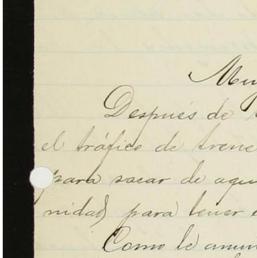 Muy
Después de
el tráfico de trene
para sacar de aqu
nidad, para tener e
Como le anun